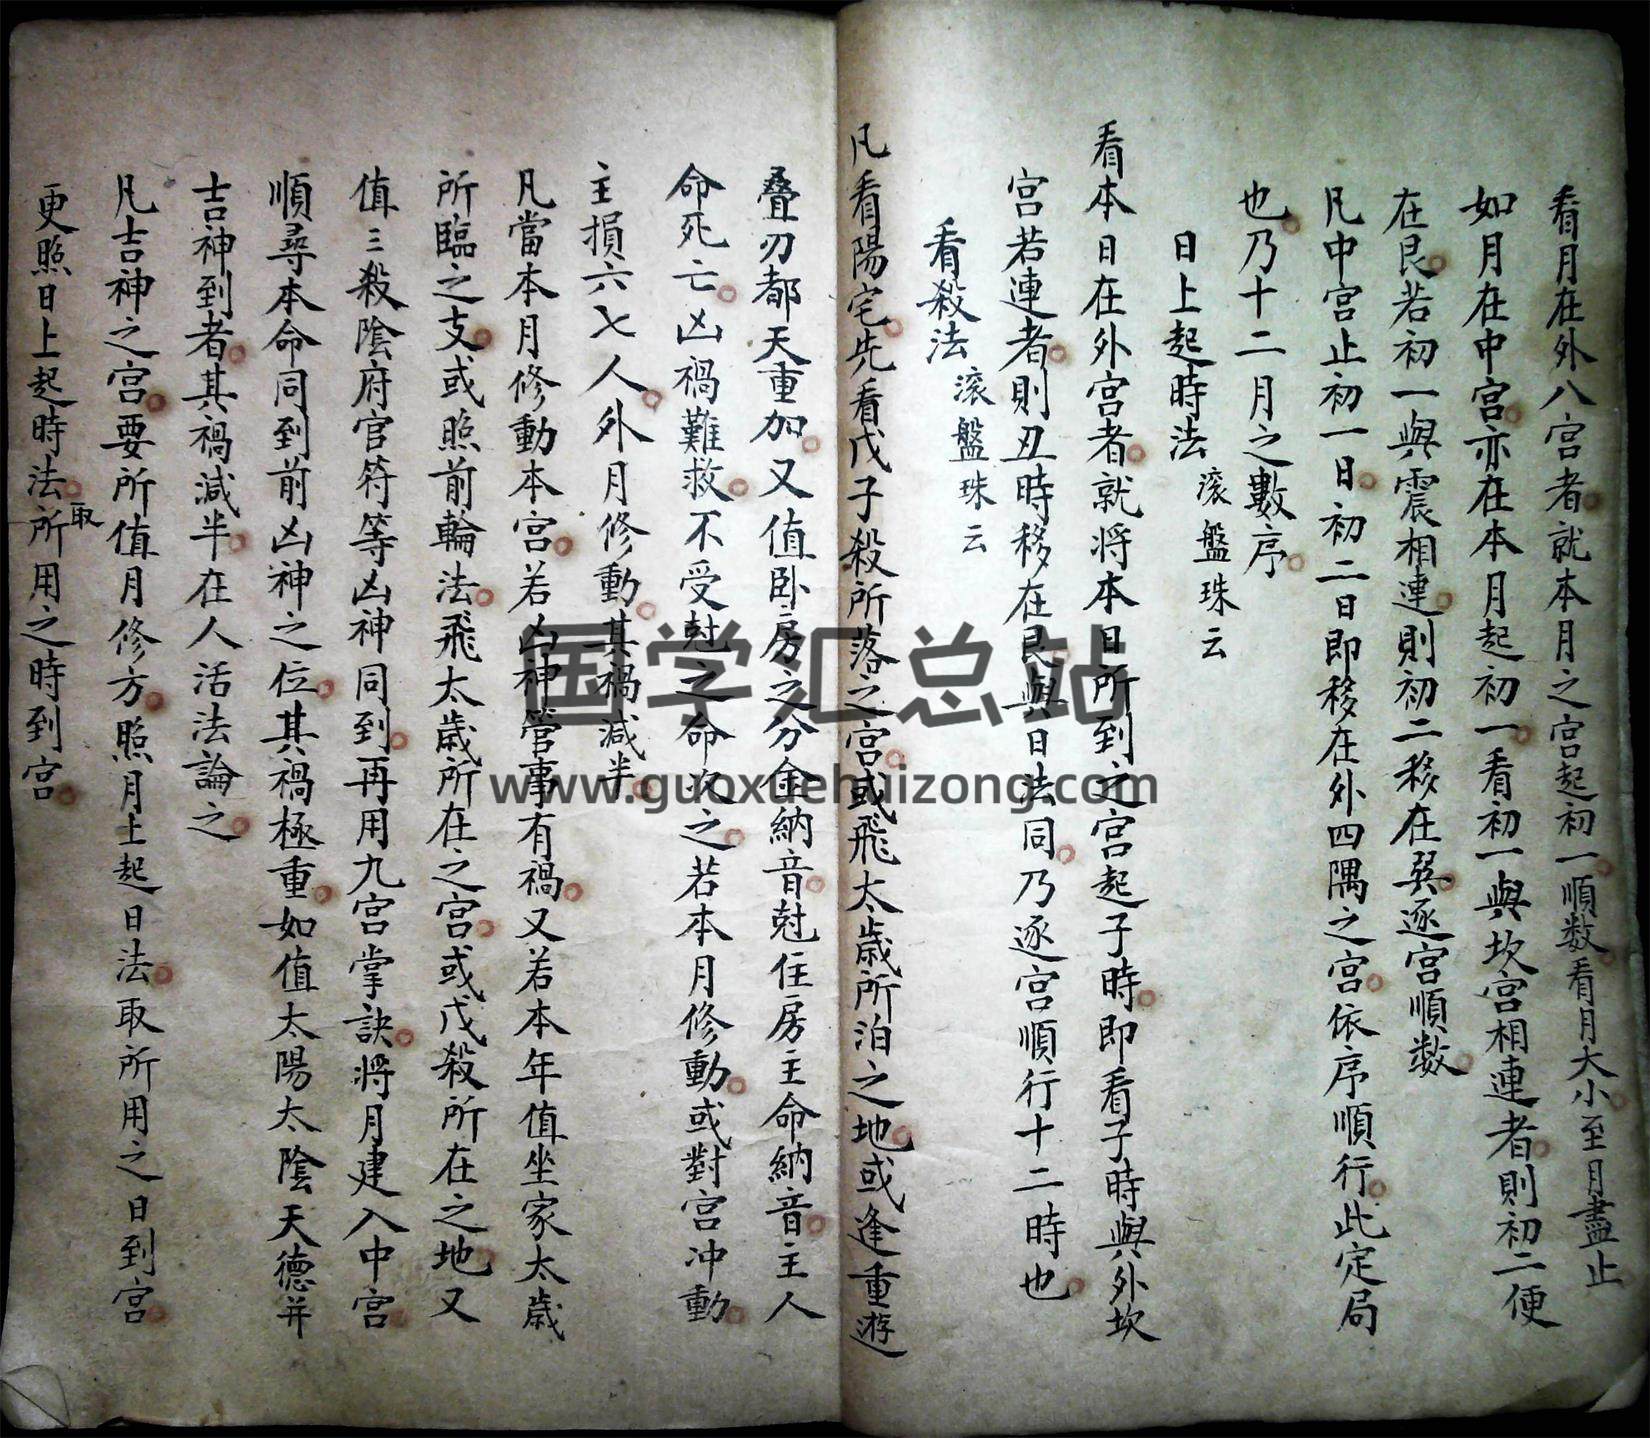 看月在外八宮者就本月之宮起初一順数看月大小至月盡止
如月在中宮亦在本月起初一看初一與坎宮相連者則初二便
在艮若初一與震相連則初二移在巽逐宮順数
凡中宮止初一日初二日即移在外四隅之宮依序順行此定局
也乃十二月之數序
日上起時法 滚盤珠云
看本日在外宮者就将本日所到之宮起子時即看子時與外坎
宮若連者則丑時移在艮與日法同乃逐宮順行十二時也
看殺法 滚盤珠云
凡看陽宅先看戊子殺所落之宮或飛太歲所泊之地或逢重遊
叠刃都天重加又值卧房之分金納音尅住房主命納音主人
命死亡凶禍難救不受尅之命次之若本月修動或對宮冲動
主損六七人外月修動其禍減半
凡當本月修動本宮若凶神管事有禍又若本年值坐家太歲
所臨之支或照前輪法飛太歲所在之宮或戊殺所在之地又
值三殺陰府官符等凶神同到再用九宮掌訣將月建入中宮
順尋本命同到前凶神之位其禍極重如值太陽太陰天德并
吉神到者其禍減半在人活法論之
凡吉神之宮要所值月修方照月上起日法取所用之日到宮
更照日上起時法取所用之時到宮
国学汇总站
www.guoxuehuizong.com